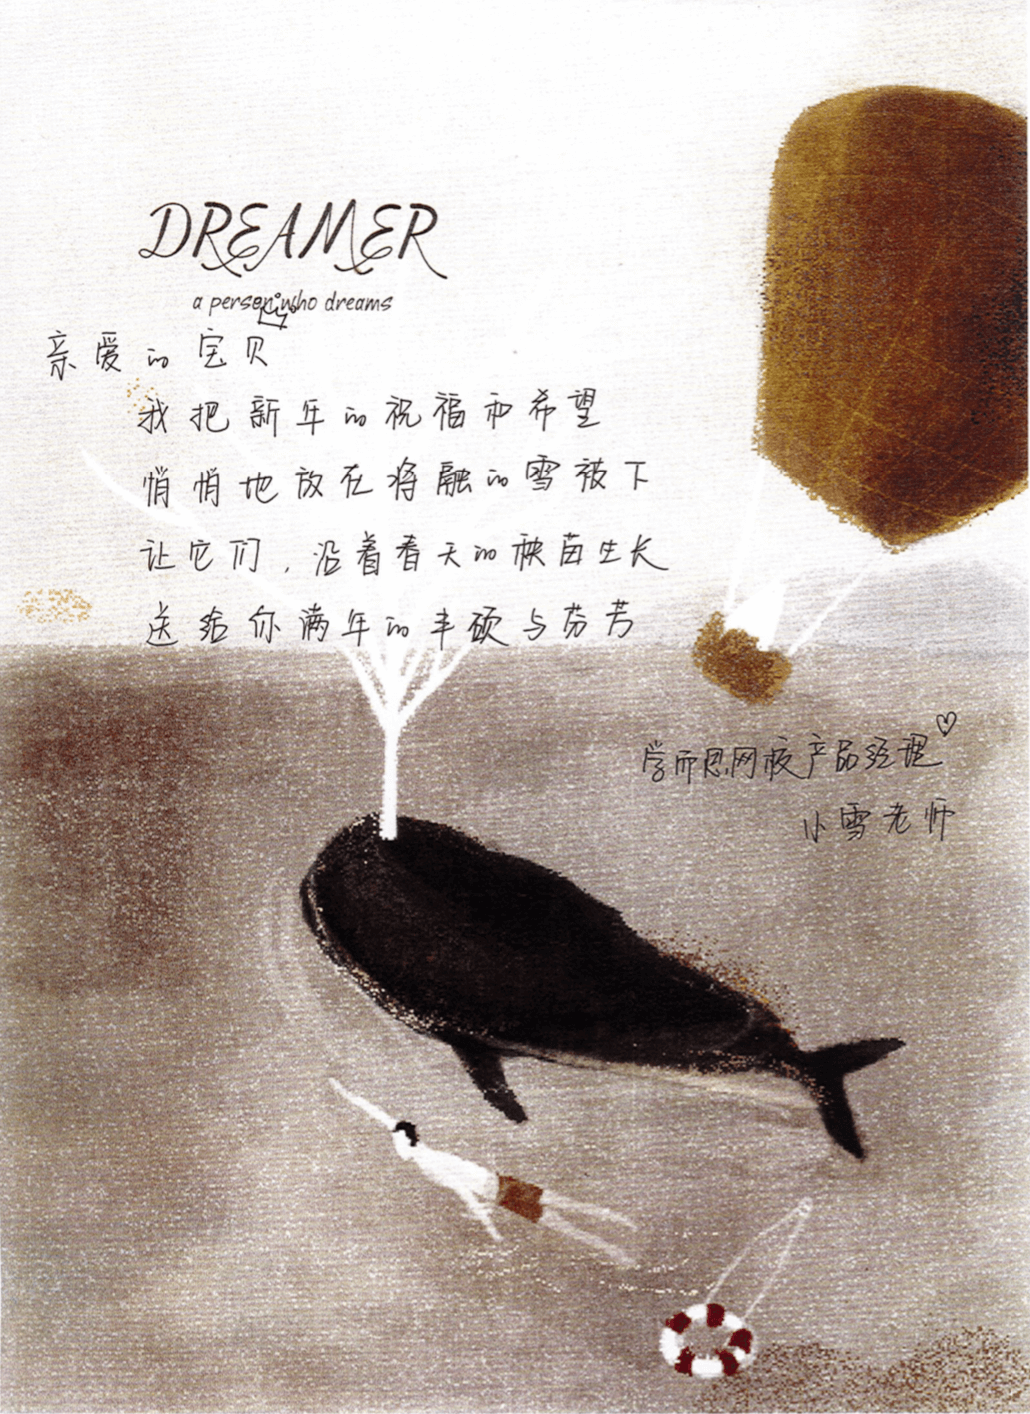 DREAMER
a person who dreams
亲爱的宝贝
我把新年的祝福和希望
悄悄地放在将融的雪被下
让它们，沿着春天的秧苗生长
送给你满年的丰硕与芬芳
学而思网校产品经理
小雪老师